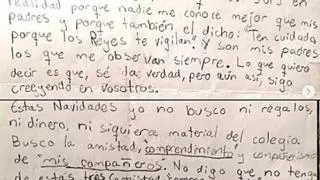 realidad porque nadie me conoce mejor que mis
padres y porque también el dicho: "Ten cuidado
porque los Reyes te vigilan" Y son mis padres
los que me observan siempre. Lo que quiero
decir es que, sé da verdad, pero aún así, sigo
creyendo en vosotros.
Estas Navidades yo no busco ni regalos,
ni dinero, ni siquiera material del colegio.
Busco la amistad, comprendimiento y compañerismo
de "mis compañeros. No digo que no tenga
de estas tres